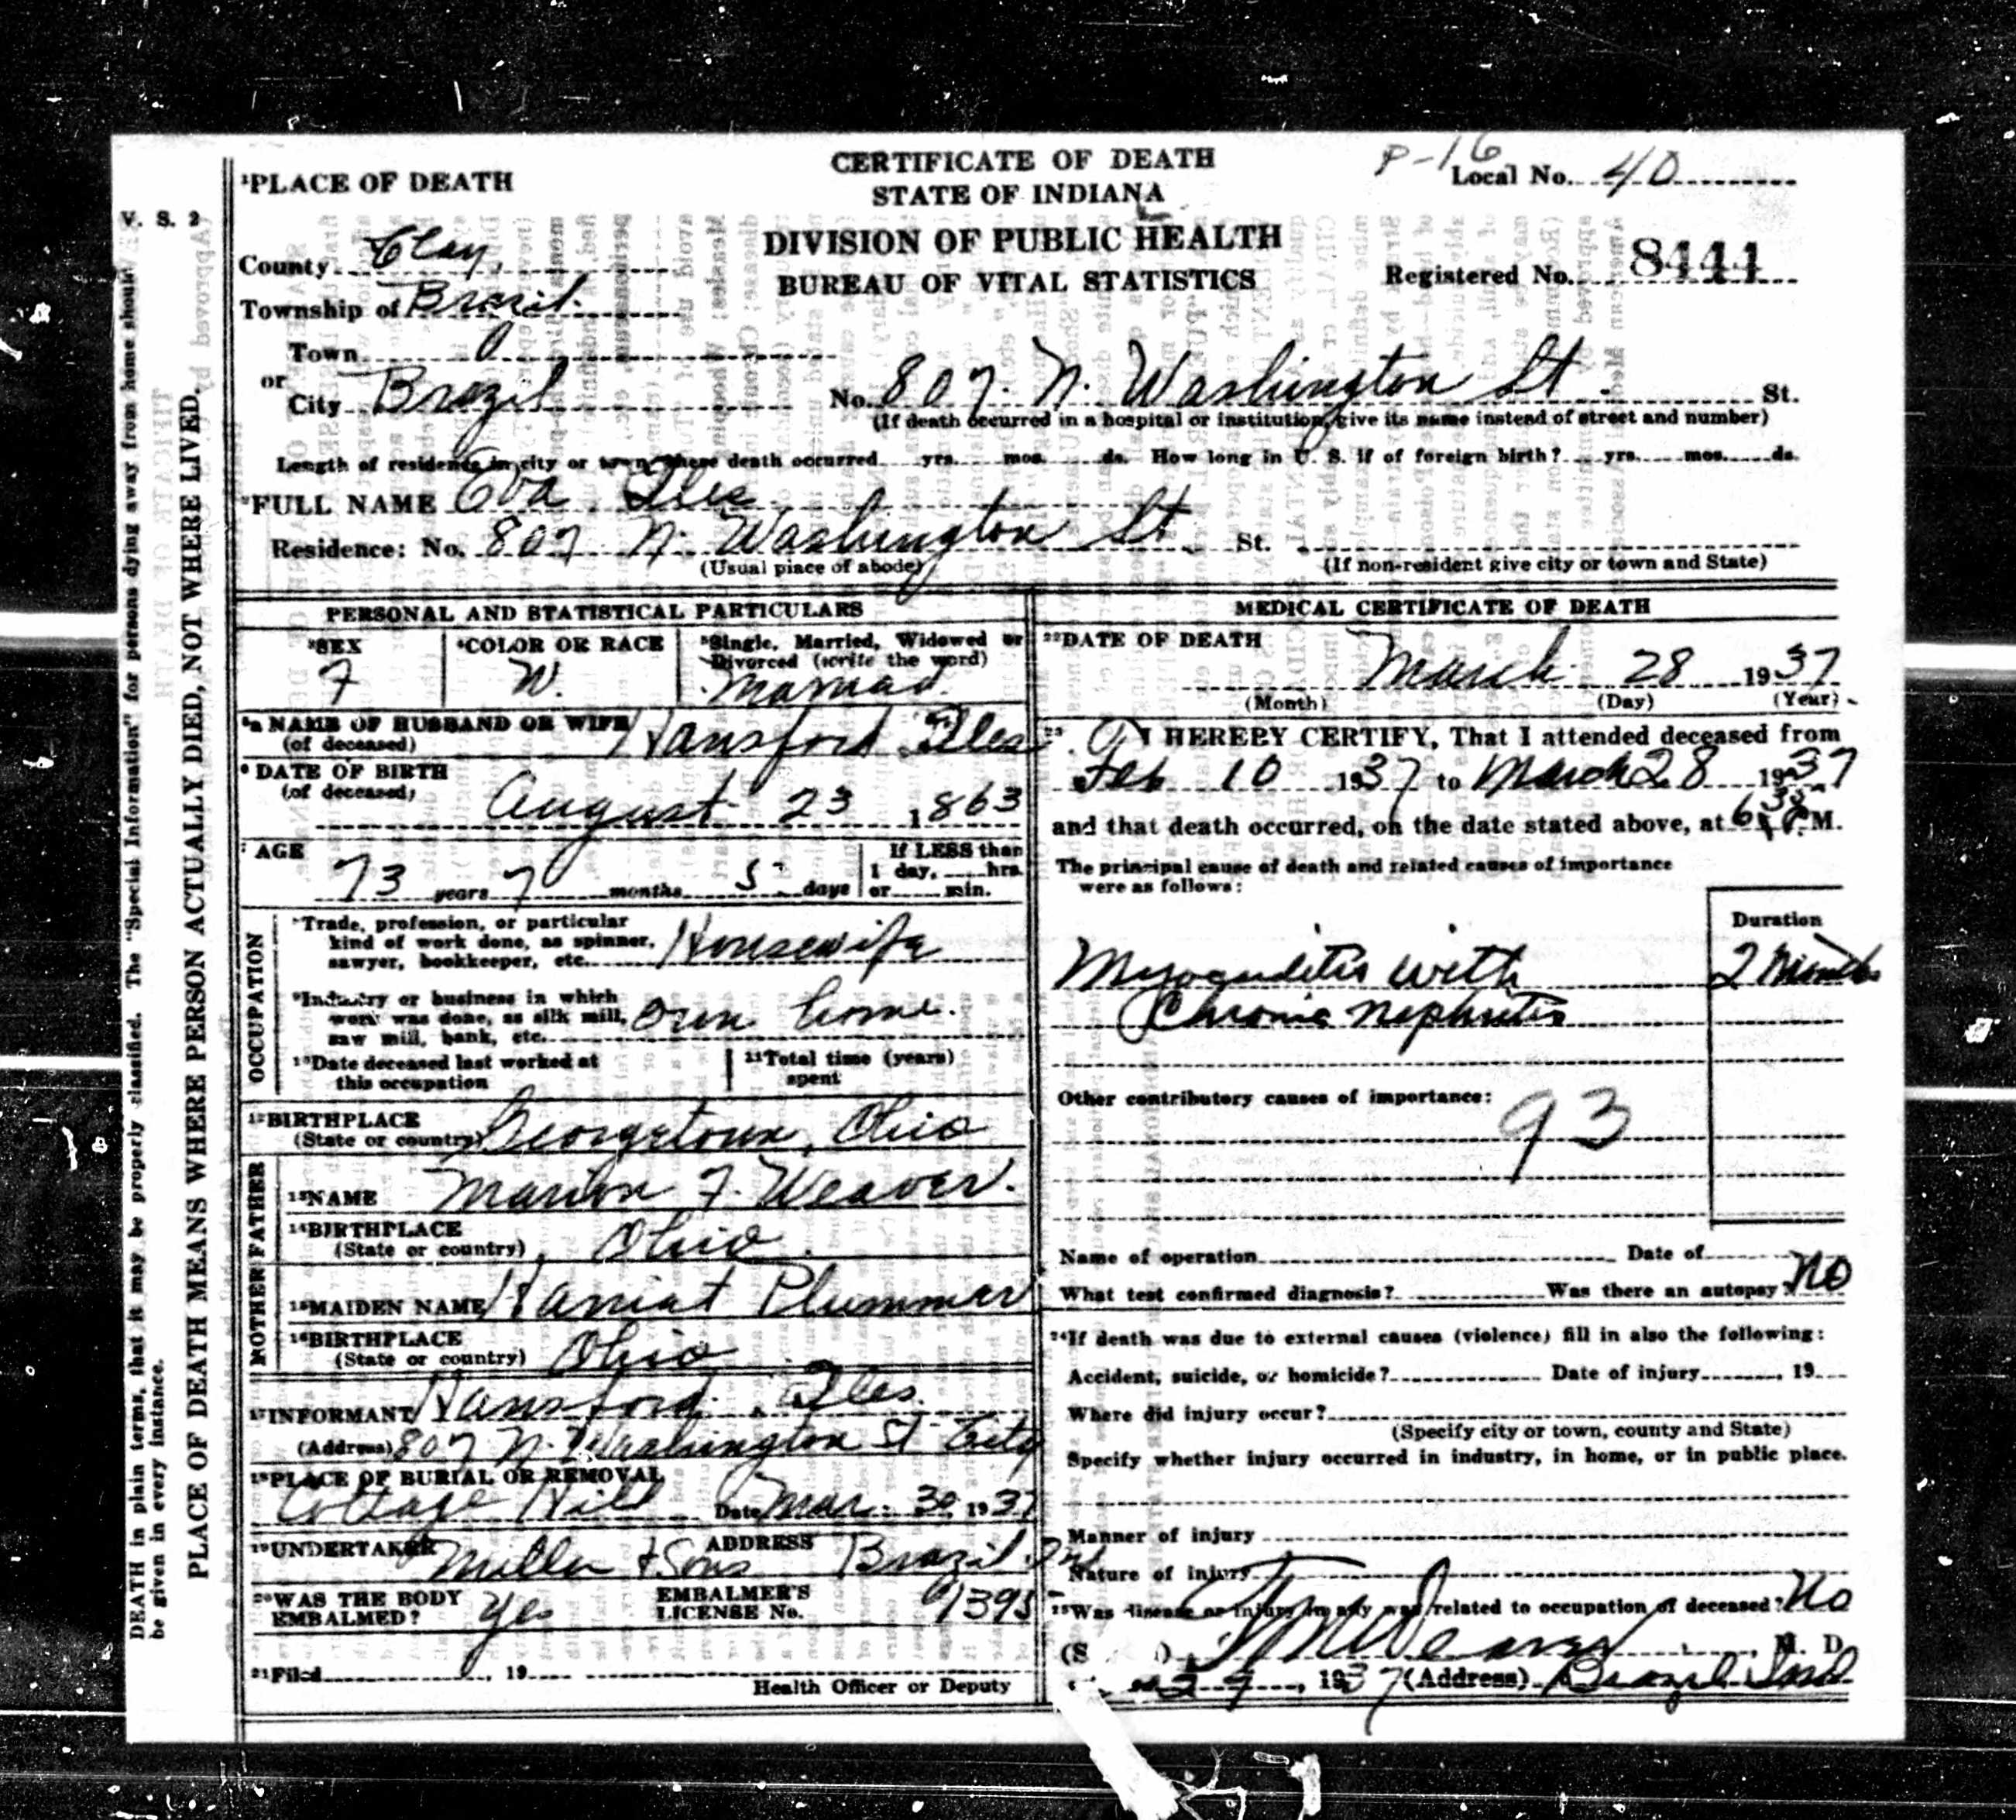 P-16
CERTIFICATE OF DEATH
STATE OF INDIANA
DIVISION OF PUBLIC HEALTH
BUREAU OF VITAL STATISTICS
Local No. 40
Registered No. 8444
V. S. 2
¹PLACE OF DEATH
County Clay
Township of Brazil
Town
or
City Brazil No. 807 N. Washington St St.
(If death occurred in a hospital or institution, give its name instead of street and number)
Length of residence in city or town where death occurred yrs. mos. ds. How long in U. S. if of foreign birth? yrs. mos. ds.
²FULL NAME Eva Iles
Residence: No. 807 N. Washington St St.
(Usual place of abode) (If non-resident give city or town and State)
PERSONAL AND STATISTICAL PARTICULARS
³SEX F
⁴COLOR OR RACE W.
⁵Single, Married, Widowed or
Divorced (write the word)
Married
⁵ᵃ NAME OF HUSBAND OR WIFE Hansford Iles
(of deceased)
⁶ DATE OF BIRTH
(of deceased) August 23 1863
⁷ AGE
73 years 7 months 5 days
If LESS than
1 day, hrs.
or min.
OCCUPATION
⁸Trade, profession, or particular
kind of work done, as spinner,
sawyer, bookkeeper, etc. Housewife
⁹Industry or business in which
work was done, as silk mill,
saw mill, bank, etc. own home.
¹⁰Date deceased last worked at
this occupation
¹¹Total time (years)
spent
¹²BIRTHPLACE
(State or country) Georgetown, Ohio
FATHER
¹³NAME Marion F. Weaver.
¹⁴BIRTHPLACE
(State or country) Ohio
MOTHER
¹⁵MAIDEN NAME Harriet Plummer
¹⁶BIRTHPLACE
(State or country) Ohio
¹⁷INFORMANT Hansford Iles
(Address) 807 N. Washington St City
¹⁸PLACE OF BURIAL OR REMOVAL
Cottage Hill Date Mar. 30, 1937
¹⁹UNDERTAKER Miller & Sons ADDRESS Brazil Ind
²⁰WAS THE BODY
EMBALMED? Yes
EMBALMER'S
LICENSE No. 1395
²¹Filed , 19
Health Officer or Deputy
MEDICAL CERTIFICATE OF DEATH
²²DATE OF DEATH
March 28 1937
(Month) (Day) (Year)
²³ I HEREBY CERTIFY, That I attended deceased from
Feb 10 1937 to March 28 1937
and that death occurred, on the date stated above, at M.
The principal cause of death and related causes of importance
were as follows:
Duration
Myocarditis with 2 Months
Chronic Nephritis
Other contributory causes of importance:
93
Name of operation Date of
What test confirmed diagnosis? Was there an autopsy? No
²⁴If death was due to external causes (violence) fill in also the following:
Accident, suicide, or homicide? Date of injury , 19
Where did injury occur?
(Specify city or town, county and State)
Specify whether injury occurred in industry, in home, or in public place.
Manner of injury
Nature of injury
²⁵Was disease or injury in any way related to occupation of deceased? No
Weaver, M. D.
1937 (Address) Brazil Ind
DEATH in plain terms, that it may be properly classified. The "Special Information" for persons dying away from home should
be given in every instance.
PLACE OF DEATH MEANS WHERE PERSON ACTUALLY DIED, NOT WHERE LIVED.